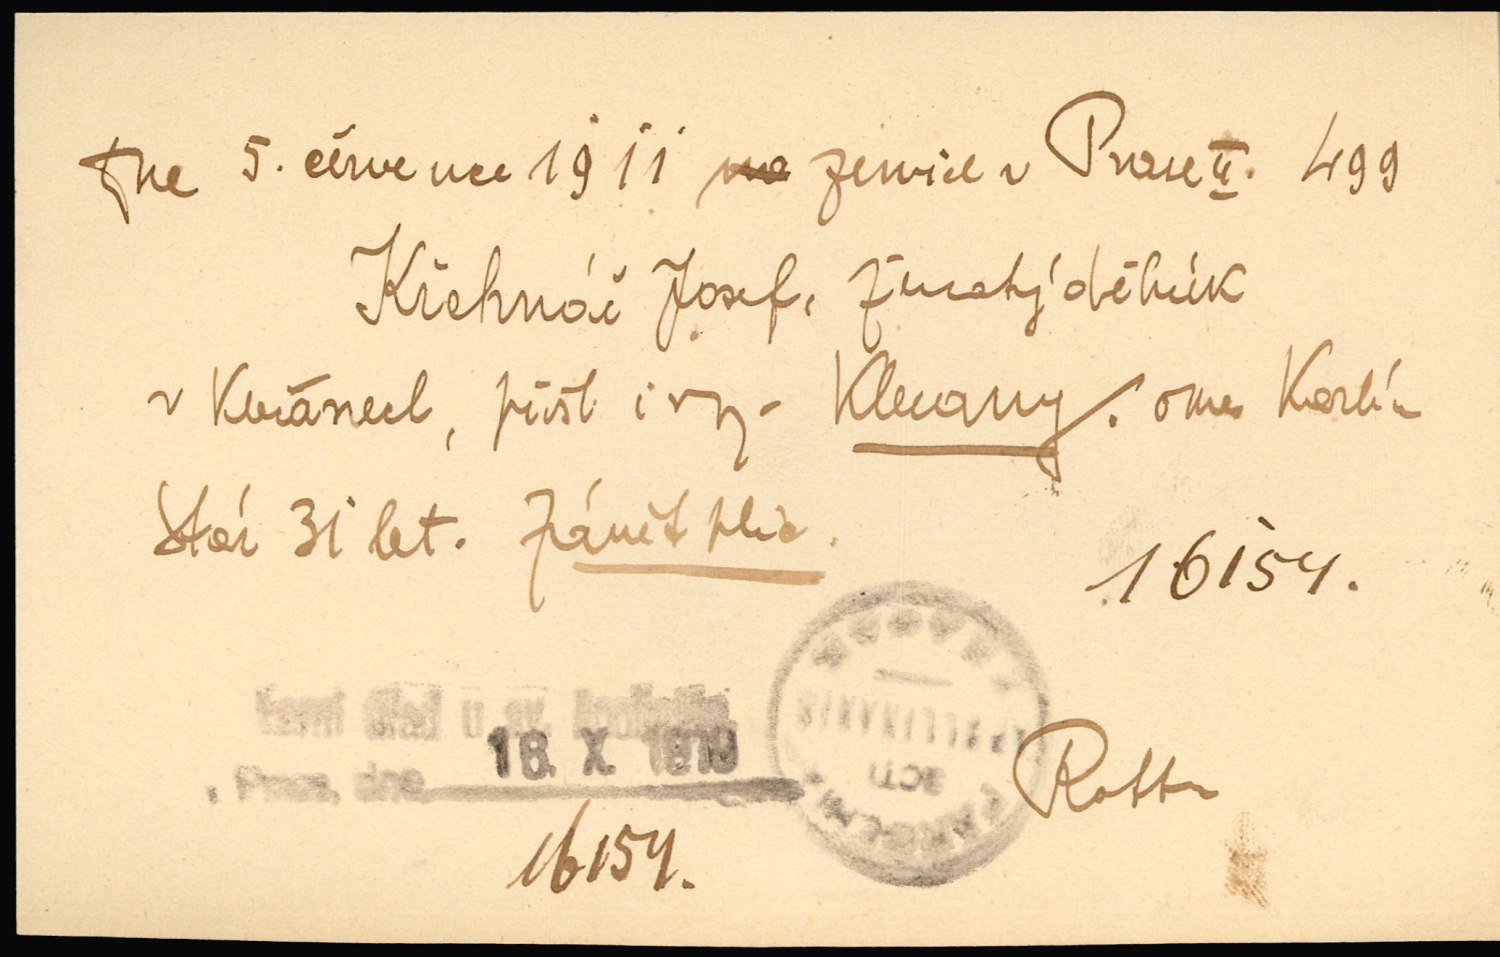 Dne 5. července 1911 zemřel v Praze II. 499
Křehnáč Josef, ženatý dělník
v Klecanech, půst i vy- Klecany. okres Karlín
Stár 31 let. Zánět plic.
16154.
úřad u sv.
Praze, dne 16. X. 1919
16154.